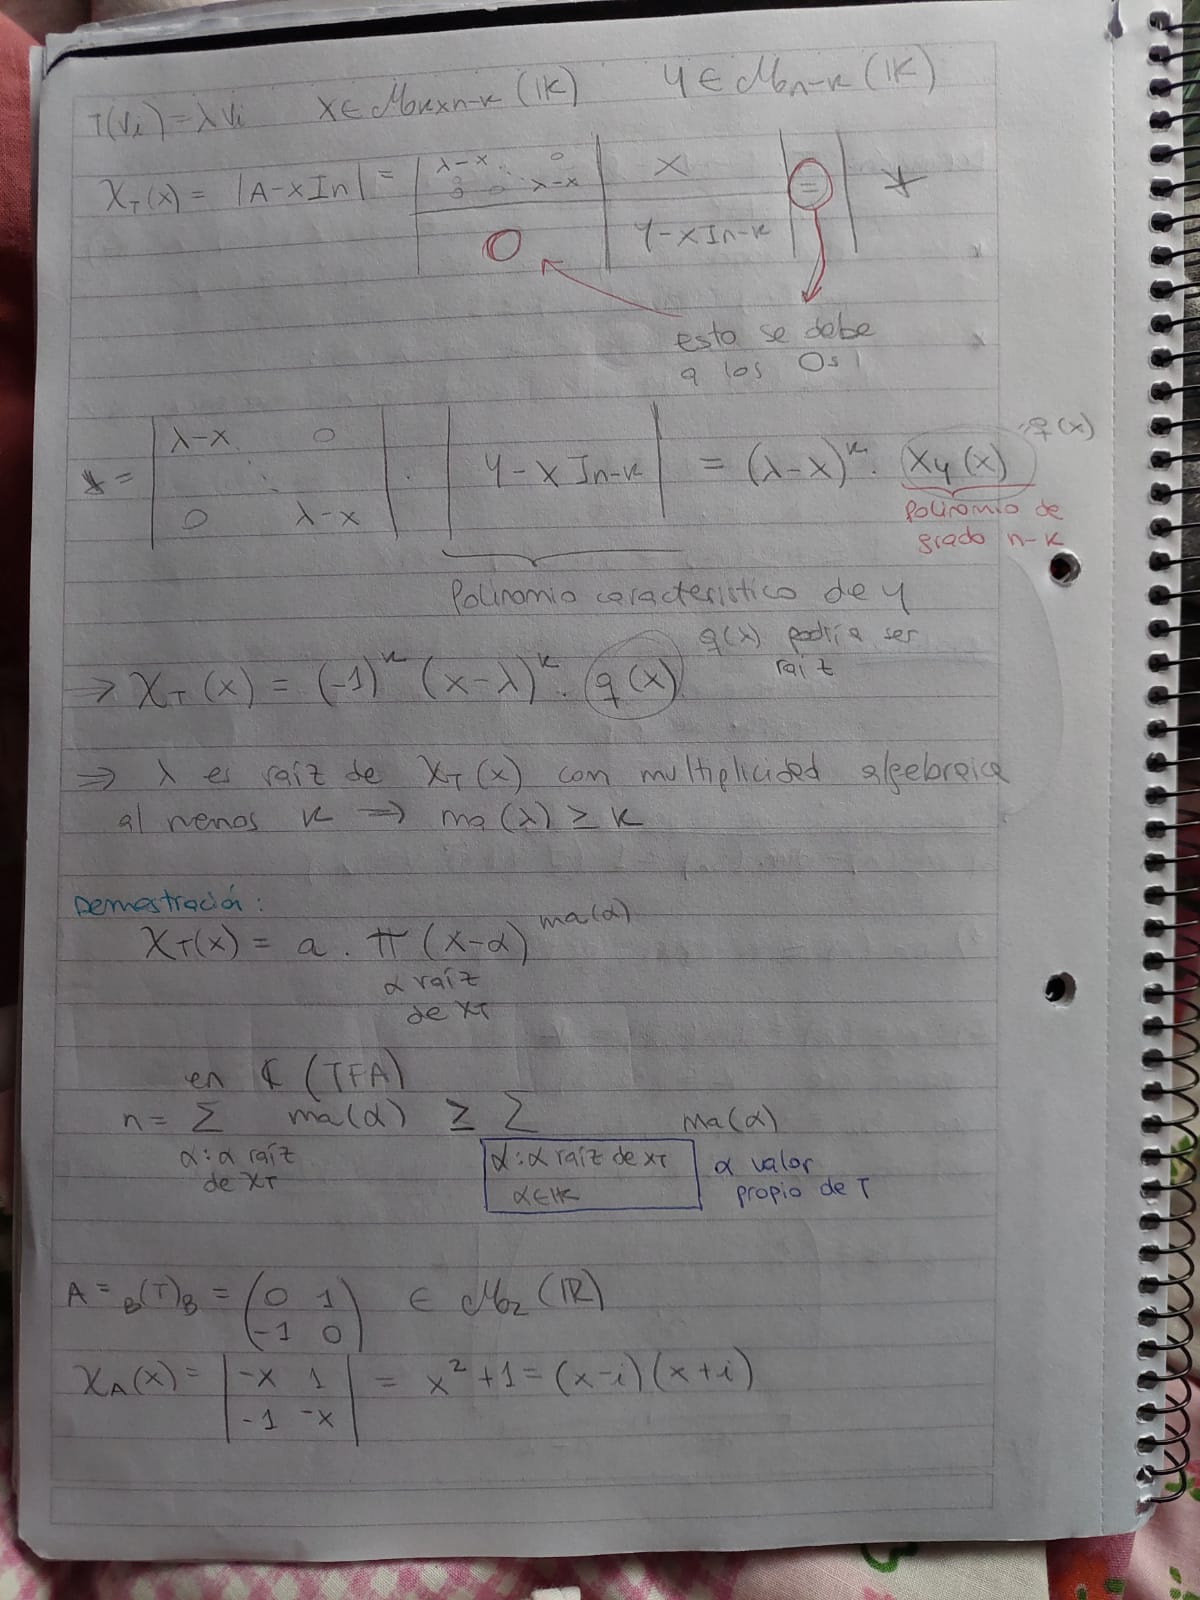 T(vi) = λvi   X ∈ Mkxn-k (IK)   Y ∈ Mn-k (IK)
χT(x) = |A-xIn| = | λ-x 0 | X | = | *
0 λ-x
O | Y-xIn-k
esto se debe
a los 0s!
* = | λ-x 0 | . | Y-xIn-k | = (λ-x)^k . χY(x) = q(x)
0 λ-x
Polinomio de
grado n-k
Polinomio característico de Y
q(λ) podría ser
raíz
⇒ χT(x) = (-1)^k (x-λ)^k . q(x)
⇒ λ es raíz de χT(x) con multiplicidad algebraica
al menos k ⇒ ma(λ) ≥ k
Demostración:
χT(x) = a . π (x-α)^ma(α)
α raíz
de χT
en ℂ (TFA)
n = Σ ma(α) ≥ Σ ma(α)
α: α raíz
de χT
α: α raíz de χT
α ∈ IK
α valor
propio de T
A = B(T)B = ( 0 1 ) ∈ M2 (IR)
-1 0
χA(x) = | -x 1 | = x² + 1 = (x-i)(x+i)
-1 -x